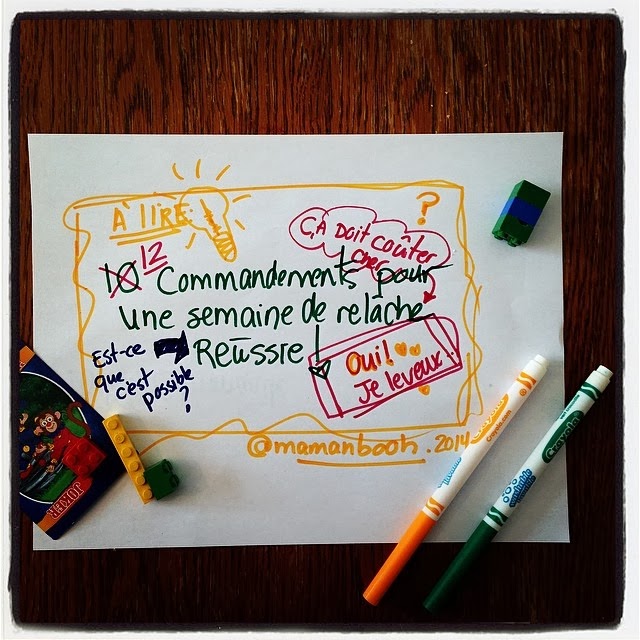 À lire
?
ÇA Doit coûter
cher
10 12 Commandements pour
une semaine de relâche
Réussie !
Est-ce
que
c'est
possible
?
Oui!
Je le veux!
@mamanbooh.2014
Crayola
Crayola
JOKER